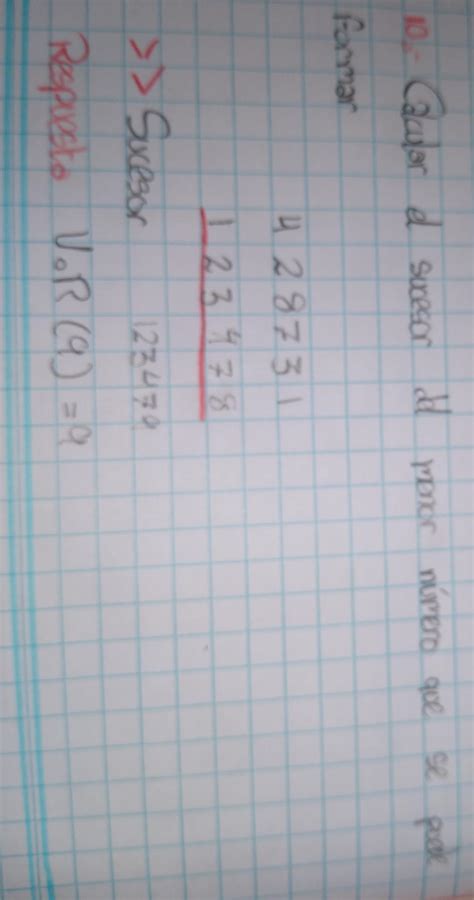 10.- Calcular el sucesor del menor número que se puede
formar
4 2 8 7 3 1
1 2 3 4 7 8
>> Sucesor 123479
Respuesta V.R (9) = 9